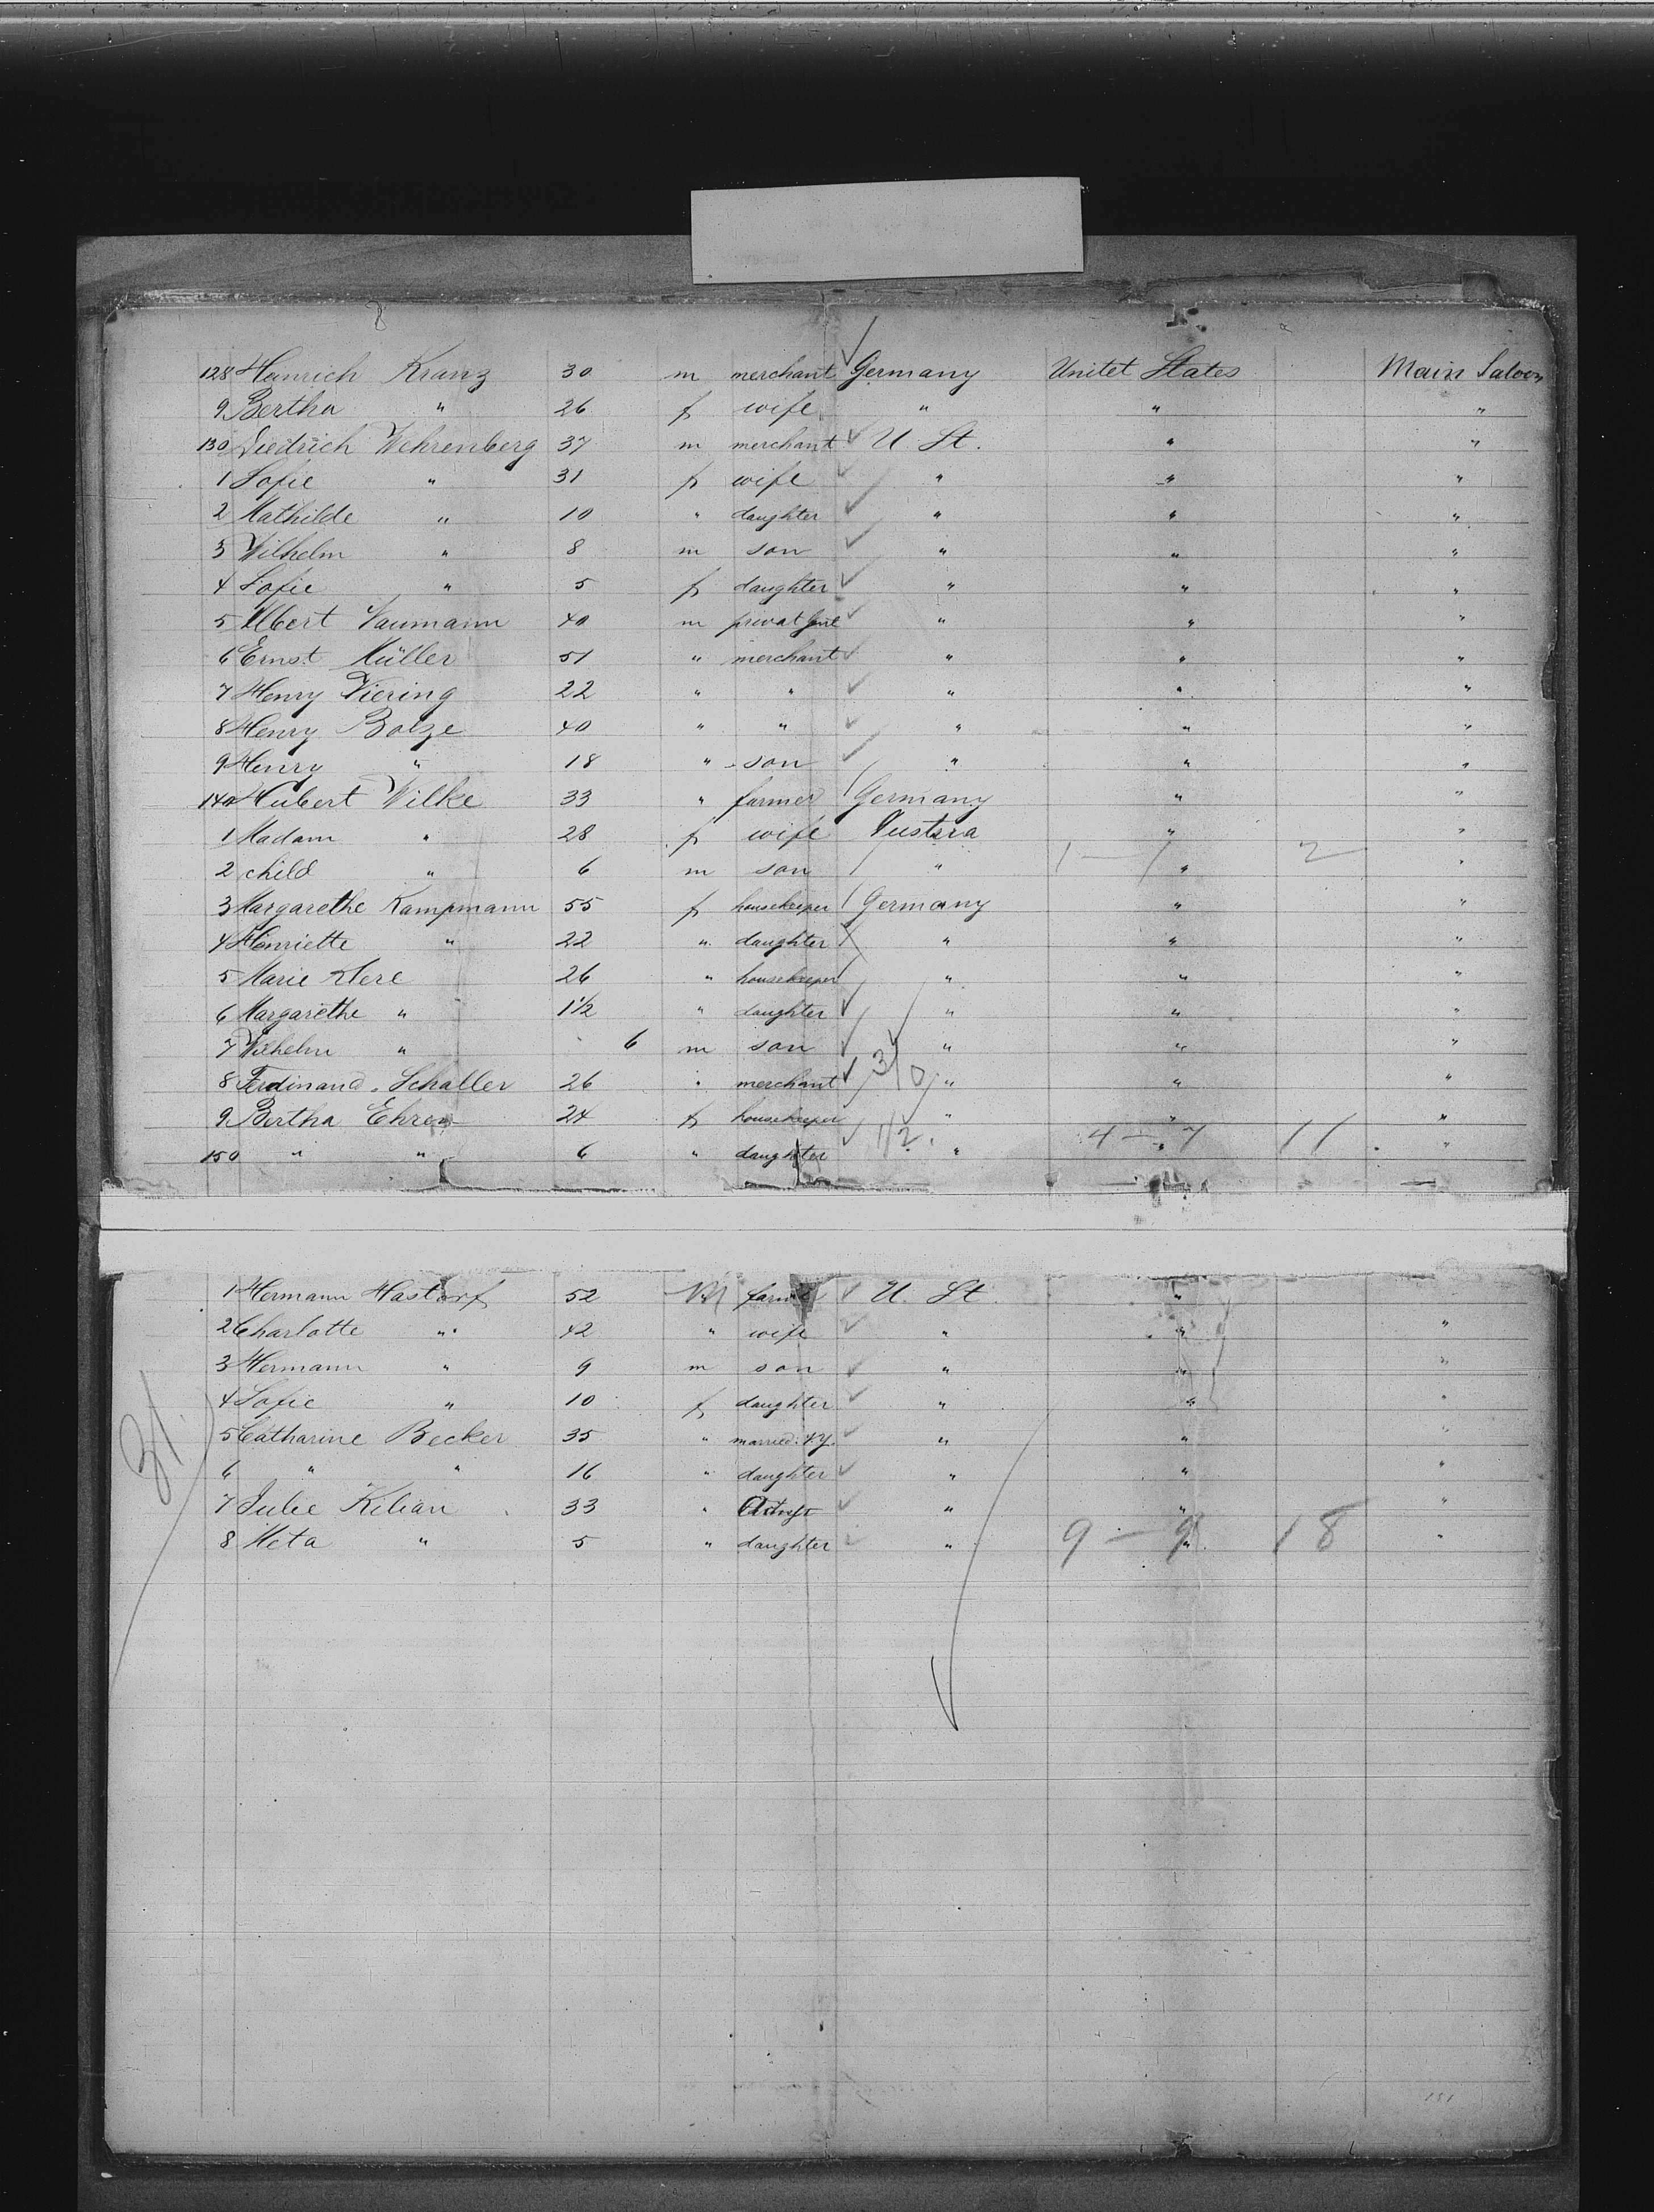 8
128 Heinrich Kranz 30 m merchant Germany Unitet States Main Saloon
9 Bertha " 26 f wife " " "
130 Diedrich Wehrenberg 37 m merchant U St. " "
1 Sofie " 31 f wife " " "
2 Mathilde " 10 " daughter " " "
3 Wilhelm " 8 m son " " "
4 Sofie " 5 f daughter " " "
5 Albert Naumann 40 m privat " " "
6 Ernst Müller 51 " merchant " " "
7 Henry Viering 22 " " " " "
8 Henry Bolze 40 " " " " "
9 Henry " 18 " son " " "
140 Hubert Wilke 33 " farmer Germany " "
1 Madam " 28 f wife Austria " "
2 child " 6 m son " 1 — 1 " 2 "
3 Margarethe Kampmann 55 f housekeeper Germany " "
4 Henriette " 22 " daughter " " "
5 Marie 26 " housekeeper " " "
6 Margarethe " 1½ " daughter " " "
7 Wilhelm " 6 m son " " "
8 Ferdinand Schaller 26 " merchant 3/0 " " "
9 Bertha Ehren 24 f housekeeper " " "
150 " " 6 " daughter 1/2. " 4 — 7 " 11 "
1 Hermann Hastorf 52 M farmer U. St. " "
2 Charlotte " 42 " wife " " "
3 Hermann " 9 m son " " "
4 Sofie " 10 f daughter " " "
31.
5 Catharine Becker 35 " married " " "
6 " " 16 " daughter " " "
7 Julie Kilian 33 " " " "
8 Meta " 5 " daughter " 9 — 9 " 18 "
151